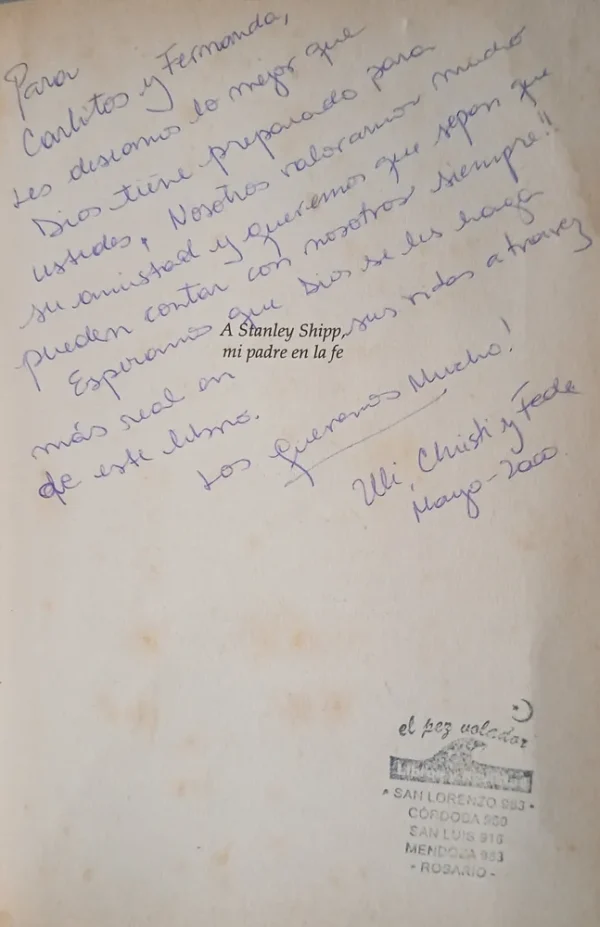 Para
Carlitos y Fernanda,
Les deseamos lo mejor que
Dios tiene preparado para
ustedes. Nosotros valoramos mucho
su amistad y queremos que sepan que
pueden contar con nosotros siempre!!
Esperamos que Dios se les haga
más real en sus vidas a travez
de este libro.
Los Queremos Mucho!
Uli, Christi y Fede
Mayo-2000.
A Stanley Shipp,
mi padre en la fe
el pez volador
SAN LORENZO 983
CÓRDOBA
SAN LUIS 916
MENDOZA
- ROSARIO -